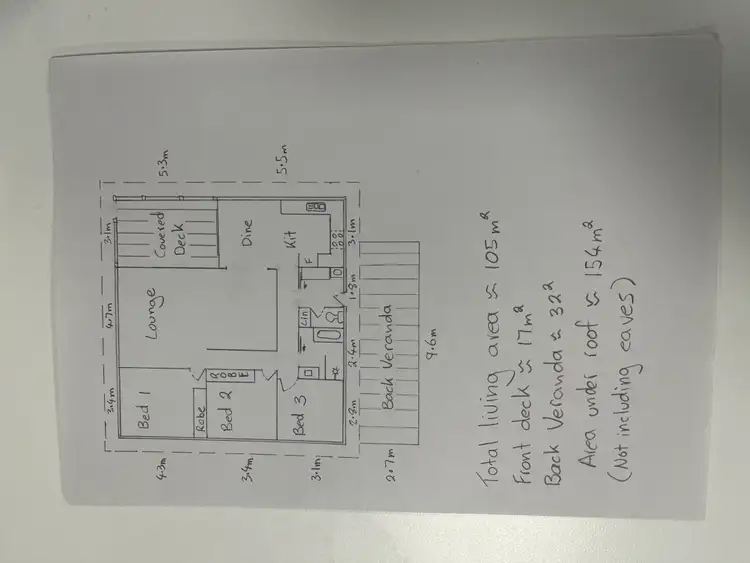 5.3m
5.5m
3.1m
4.7m
3.4m
Covered
Deck
Dine
Kit
Lounge
F
Lin
Bed 1
Robe
Bed 2
ROBE
Bed 3
3.1m
1.8m
2.4m
2.8m
Back Veranda
9.6m
4.3m
3.4m
3.1m
2.7m
Total living area ≈ 105m²
Front deck ≈ 17m²
Back Veranda ≈ 32²
Area under roof ≈ 154m²
(Not including eaves)